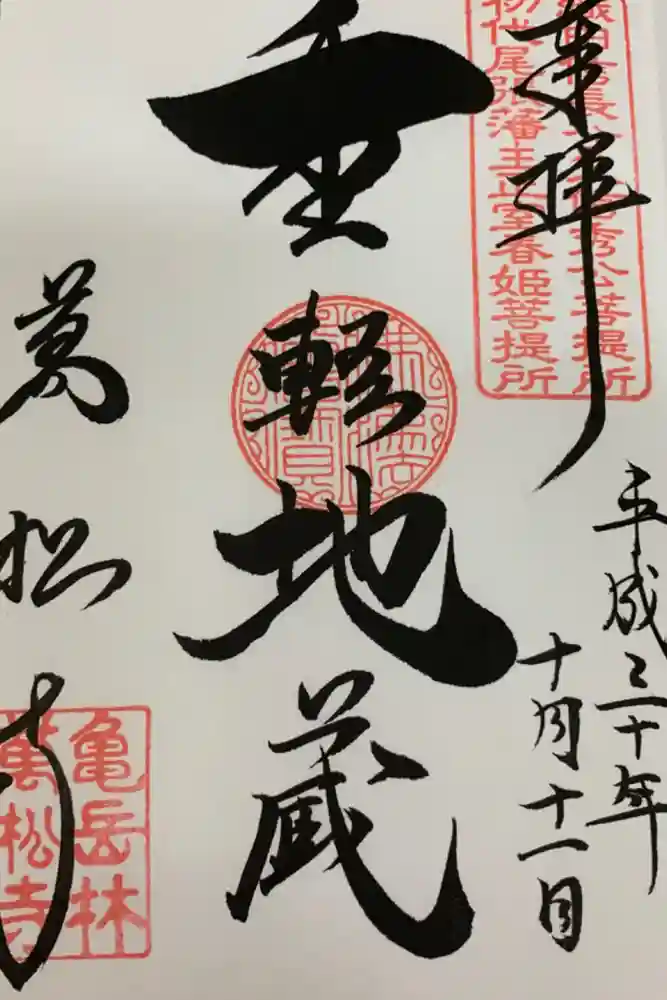 奉拝
織田信長公 秀公菩提所
初代尾張藩主正室春姫菩提所
平成三十年
十月十一日
重軽地蔵
萬松寺
亀岳林
萬松寺